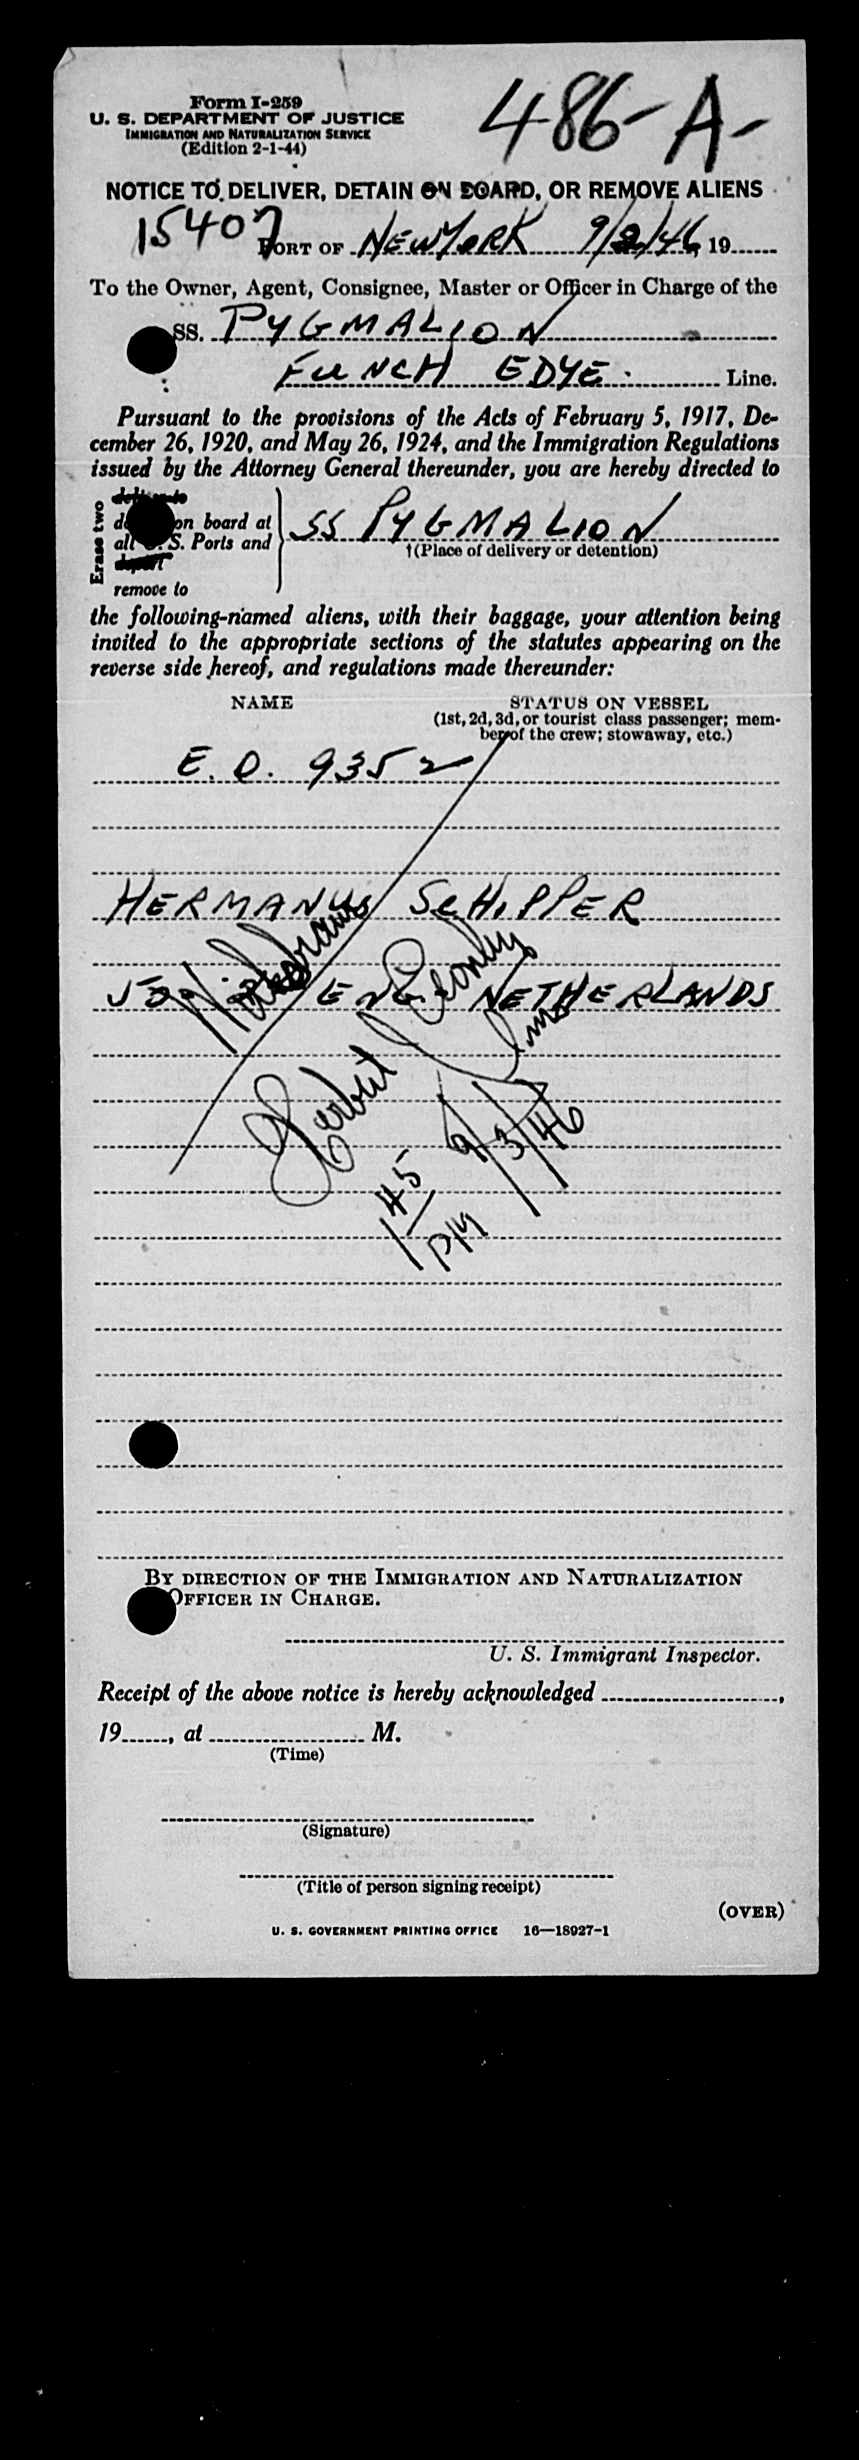 Form I-259
U. S. DEPARTMENT OF JUSTICE
IMMIGRATION AND NATURALIZATION SERVICE
(Edition 2-1-44)
486-A-
NOTICE TO DELIVER, DETAIN ON BOARD, OR REMOVE ALIENS
15407
PORT OF NEW YORK 9/2/46, 19
To the Owner, Agent, Consignee, Master or Officer in Charge of the
SS. PYGMALION
FUNCH EDYE. Line.
Pursuant to the provisions of the Acts of February 5, 1917, De-
cember 26, 1920, and May 26, 1924, and the Immigration Regulations
issued by the Attorney General thereunder, you are hereby directed to
Erase two
deliver to
on board at
all U. S. Ports and
deport
remove to
SS PYGMALION
†(Place of delivery or detention)
the following-named aliens, with their baggage, your attention being
invited to the appropriate sections of the statutes appearing on the
reverse side hereof, and regulations made thereunder:
NAME
STATUS ON VESSEL
(1st, 2d, 3d, or tourist class passenger; mem-
ber of the crew; stowaway, etc.)
E. O. 9352
HERMANUS SCHIPPER
Withdrawn
ENG NETHERLANDS
Herbert
Ims
1 45 PM 9/3/46
BY DIRECTION OF THE IMMIGRATION AND NATURALIZATION
OFFICER IN CHARGE.
U. S. Immigrant Inspector.
Receipt of the above notice is hereby acknowledged ,
19 , at M.
(Time)
(Signature)
(Title of person signing receipt)
(OVER)
U. S. GOVERNMENT PRINTING OFFICE 16—18927-1